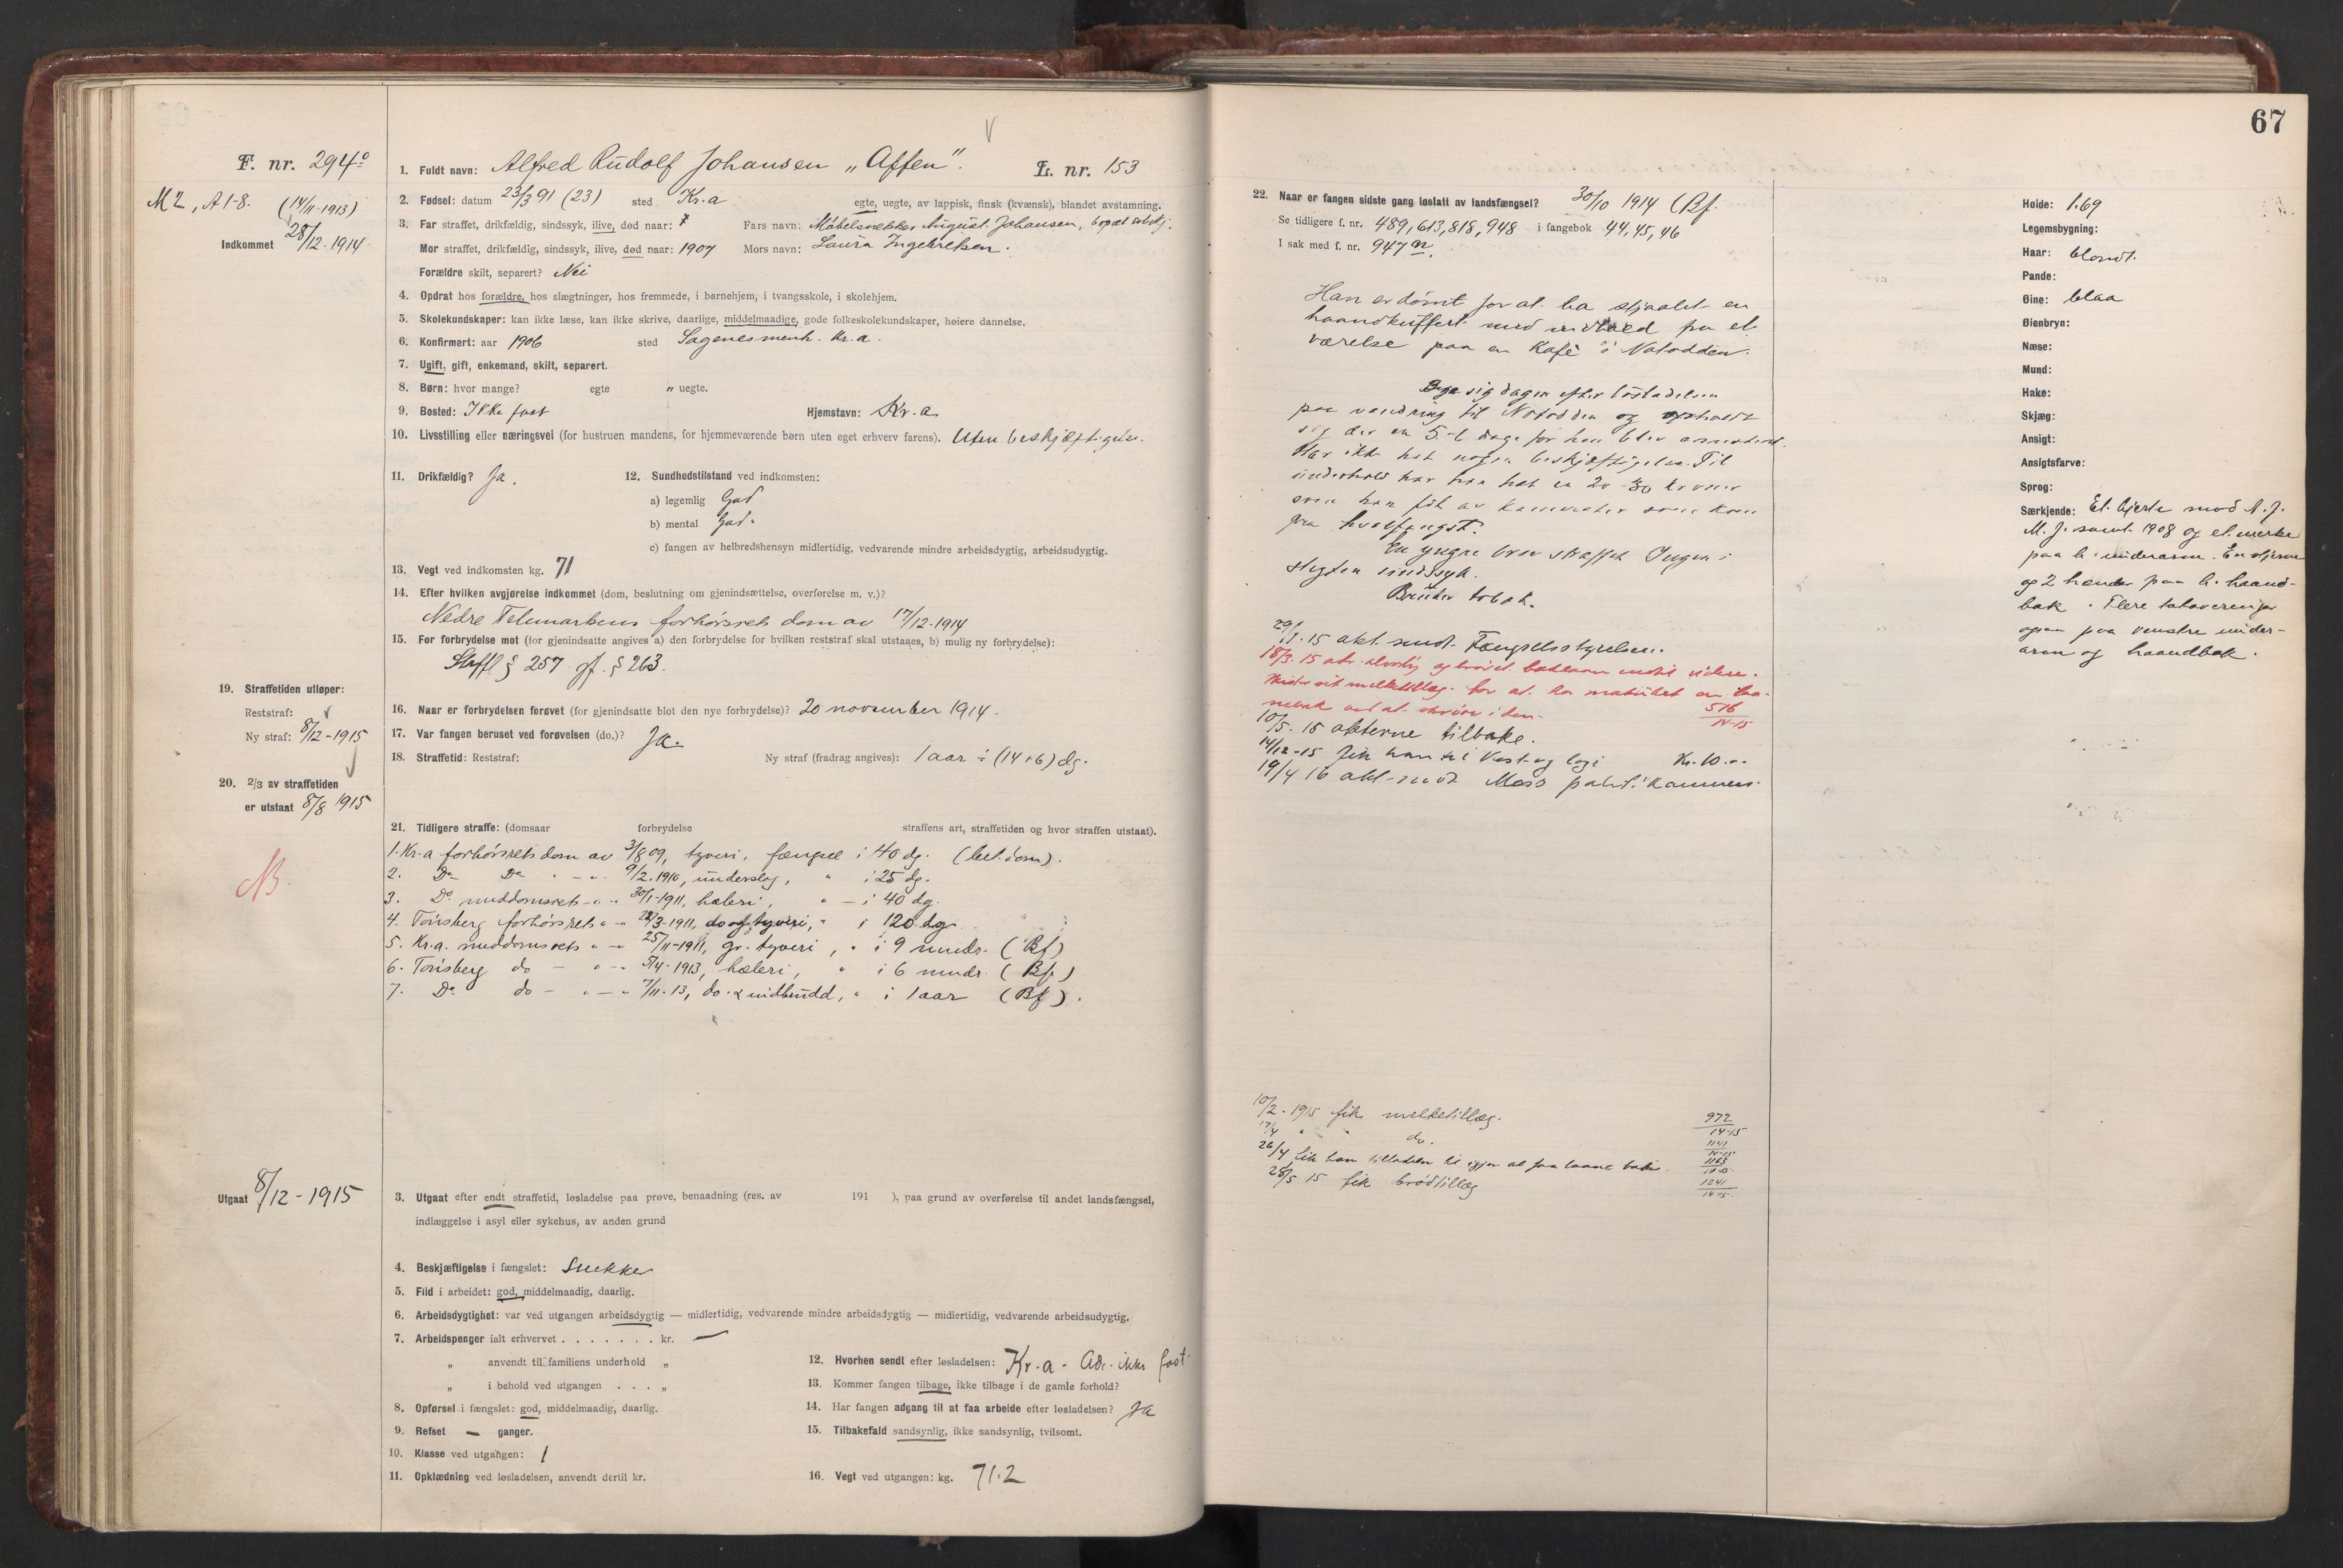 F. nr. 294°
M 2, A 1-8. (14/11-1913)
Indkommet 28/12-1914
1. Fuldt navn: Alfred Rudolf Johansen „Affen". L. nr. 153
2. Fødsel: datum 23/3 91 (23) sted Kr.a egte, uegte, av lappisk, finsk (kvænsk), blandet avstamning.
3. Far straffet, drikfældig, sindssyk, ilive, død naar: Fars navn: Møbelsnekker August Johansen, bopæl
Mor straffet, drikfældig, sindssyk, ilive, død naar: 1907 Mors navn: Laura Ingebretsen.
Forældre skilt, separert? Nei
4. Opdrat hos forældre, hos slægtninger, hos fremmede, i barnehjem, i tvangsskole, i skolehjem.
5. Skolekundskaper: kan ikke læse, kan ikke skrive, daarlige, middelmaadige, gode folkeskolekundskaper, høiere dannelse.
6. Konfirmert: aar 1906 sted Sagenesmenh. Kr.a.
7. Ugift, gift, enkemand, skilt, separert.
8. Børn: hvor mange? egte „ uegte.
9. Bosted: Ikke fast Hjemstavn: Kr.a
10. Livsstilling eller næringsvei (for hustruen mandens, for hjemmeværende børn uten eget erhverv farens). Uten beskjæftigelse.
11. Drikfældig? Ja. 12. Sundhedstilstand ved indkomsten:
a) legemlig God
b) mental God.
c) fangen av helbredshensyn midlertidig, vedvarende mindre arbeidsdygtig, arbeidsudygtig.
13. Vegt ved indkomsten kg. 71
14. Efter hvilken avgjørelse indkommet (dom, beslutning om gjenindsættelse, overførelse m. v.)?
Nedre Telemarkens forhørsrets dom av 17/12-1914
15. For forbrydelse mot (for gjenindsatte angives a) den forbrydelse for hvilken reststraf skal utstaaes, b) mulig ny forbrydelse):
Straffl § 257 jf. § 263.
19. Straffetiden utløper:
Reststraf:
Ny straf: 8/12-1915
16. Naar er forbrydelsen forøvet (for gjenindsatte blot den nye forbrydelse)? 20 november 1914.
17. Var fangen beruset ved forøvelsen (do.)? Ja.
18. Straffetid: Reststraf: Ny straf (fradrag angives): 1 aar ÷ (14+6) dg.
20. 2/3 av straffetiden
er utstaat 8/8 1915
NB.
21. Tidligere straffe: (domsaar forbrydelse straffens art, straffetiden og hvor straffen utstaat).
1. Kr.a forhørsrets dom av 3/8 09, tyveri, fængsel i 40 dg. (bet. dom).
2. Do Do " - " 9/2.1910, underslag, " i 25 dg.
3. Do meddomsrets - " - " 30/1-1911, hæleri, " - i 40 dg.
4. Tønsberg forhørsrets " - " 28/3-1911, do og tyveri, " i 120 dg
5. Kr.a. meddomsrets " - " 25/11-1911, gr. tyveri, " i 9 mndr. (Bf)
6. Tønsberg do - " - " 5/4-1913, hæleri, " i 6 mndr. (Bf.)
7. Do do - " - " 7/11-13, do. & indbrudd, " i 1 aar (Bf).
Utgaat 8/12-1915
3. Utgaat efter endt straffetid, løsladelse paa prøve, benaadning (res. av 191 ), paa grund av overførelse til andet landsfængsel,
indlæggelse i asyl eller sykehus, av anden grund
4. Beskjæftigelse i fængslet: Snekker
5. Flid i arbeidet: god, middelmaadig, daarlig.
6. Arbeidsdygtighet: var ved utgangen arbeidsdygtig — midlertidig, vedvarende mindre arbeidsdygtig — midlertidig, vedvarende arbeidsudygtig.
7. Arbeidspenger ialt erhvervet . . . . . . . kr. —
„ anvendt til familiens underhold „
„ i behold ved utgangen . . . „
8. Opførsel i fængslet: god, middelmaadig, daarlig.
9. Refset — ganger.
10. Klasse ved utgangen: 1
11. Opklædning ved løsladelsen, anvendt dertil kr.
12. Hvorhen sendt efter løsladelsen: Kr.a. Adr. ikke fast
13. Kommer fangen tilbage, ikke tilbage i de gamle forhold?
14. Har fangen adgang til at faa arbeide efter løsladelsen? Ja
15. Tilbakefald sandsynlig, ikke sandsynlig, tvilsomt.
16. Vegt ved utgangen: kg. 71.2
67
22. Naar er fangen sidste gang løslatt av landsfængsel? 30/10 1914 (Bf.
Se tidligere f. nr. 489, 613, 818, 948 i fangebok 44, 45, 46
I sak med f. nr. 947
Han er dømt for at ha stjaalet en
haandkuffert med indhold paa et
værelse paa en Kafé i Notodden.
Begav sig dagen efter løsladelsen
paa vandring til Notodden og opholdt
sig der en 5-6 dage før han blev arrestert.
Har ikke hat nogen beskjæftigelse. Til
underhold har han hat en 20-30 kroner
som han fik av kamerater som kom
fra hvalfangst.
En yngre bror straffet. Ingen i
slegten sindssyk.
Bruker tobak.
29/1-15 akt. sendt Fængselsstyrelsen.
18/3.15 indtil videre.
melketillæg for at ha
516
14-15
10/5-15 akterne tilbake.
14/12-15 fik han til Kost og logi Kr. 10.00
19/4 16 akt. sendt Moss politikammer.
10/2-1915 fik melketillæg. 972
14-15
17/4 " " do. 1141
14-15
26/4 fik han tilladelse til igjen at faa laane bøker. 1163
14-15
28/5 15 fik brødtillæg 1241
14-15
Høide: 1.69
Legemsbygning:
Haar: blondt.
Pande:
Øine: blaa
Øienbryn:
Næse:
Mund:
Hake:
Skjæg:
Ansigt:
Ansigtsfarve:
Sprog:
Særkjende: Et hjerte med A. J.
M. J. samt 1908 og et merke
paa h. underarm. En stjerne
og 2 hænder paa h. haand-
bak. Flere tatoveringer
ogsaa paa venstre under-
arm og haandbak.